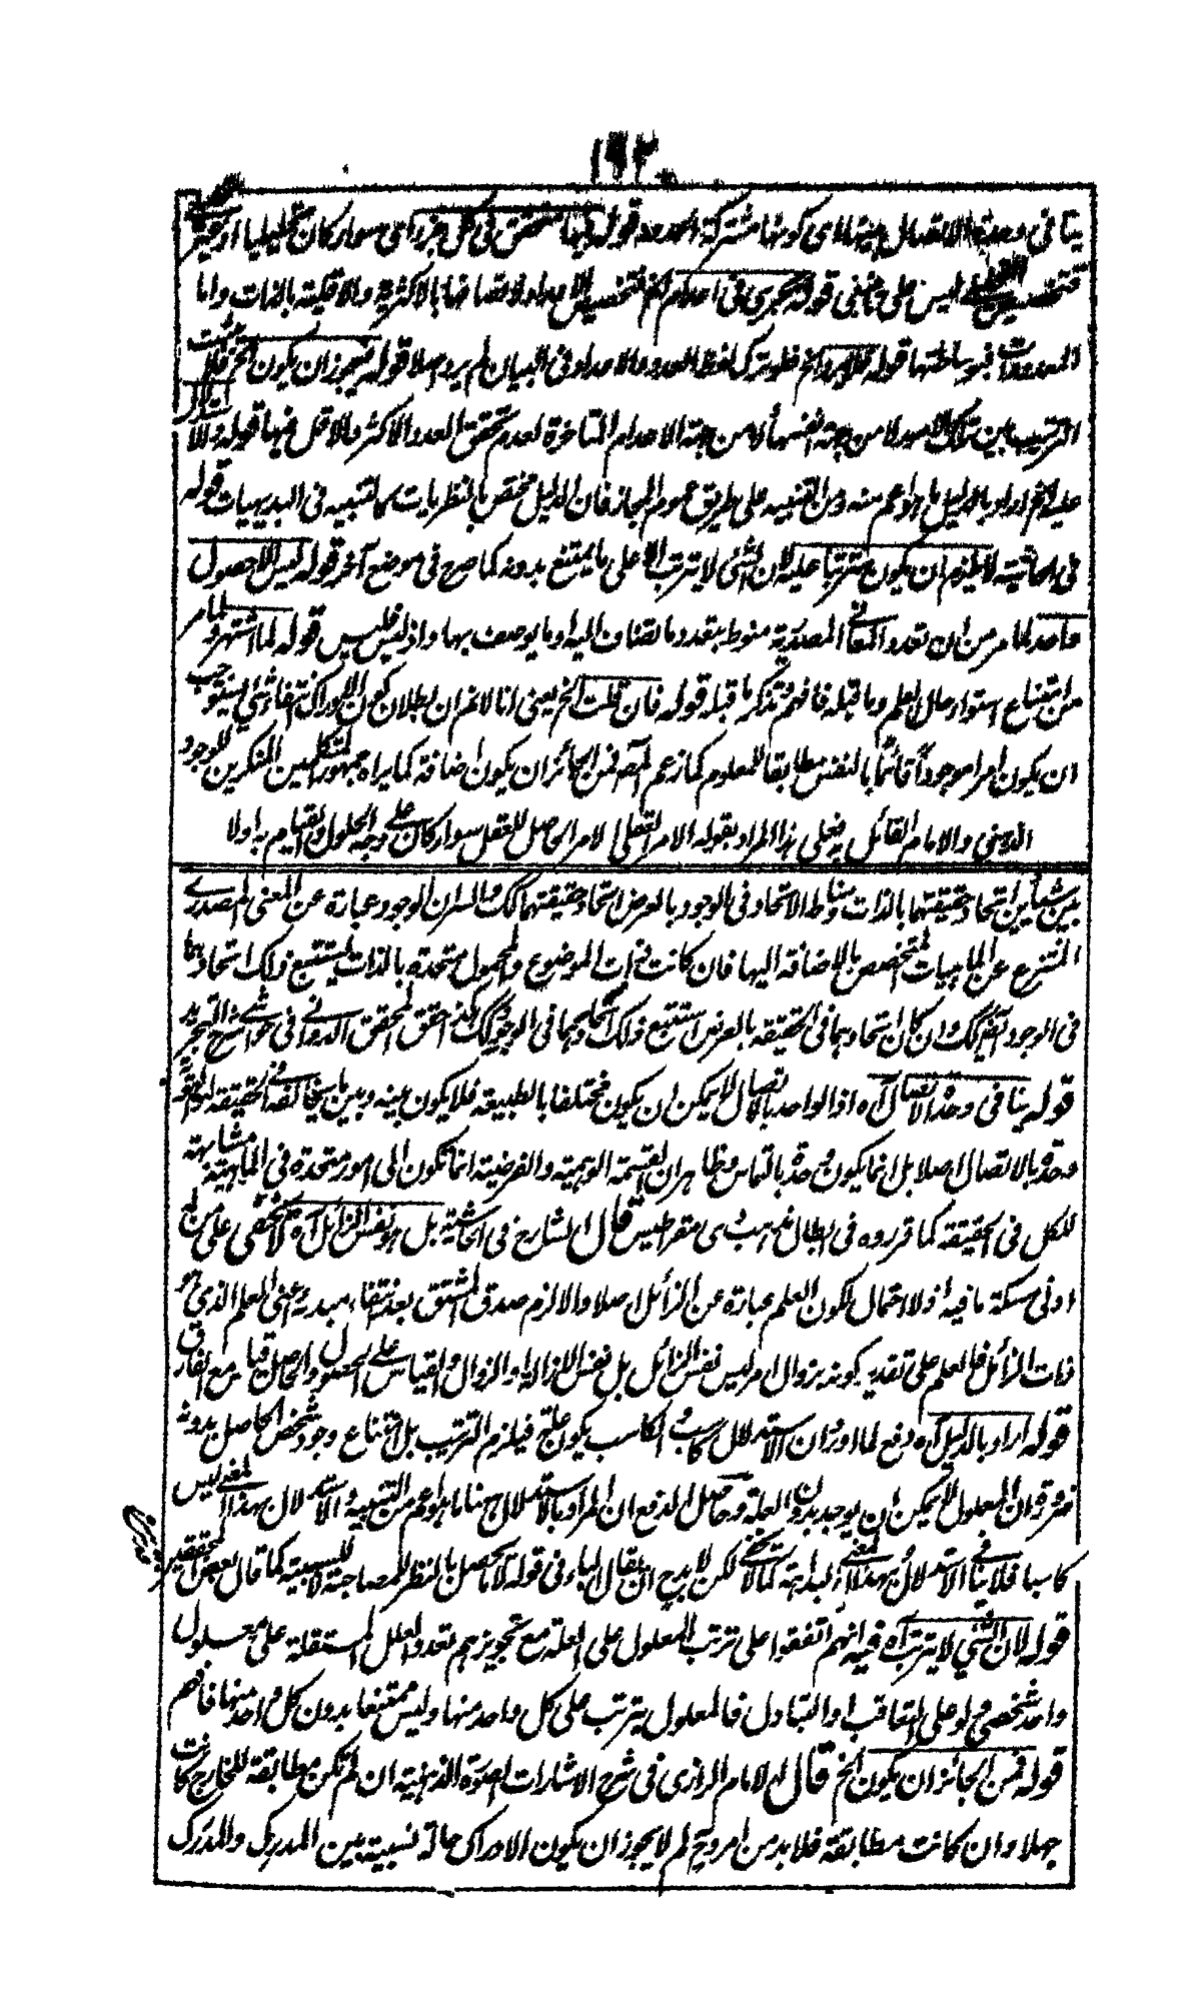 ١٩٢
ينافى وحدة الاتصال بينها اى كونها مشتركة الحدود قوله ايضا متحقق فى كل جزء اى سواء كان تحليليا او
ليس على ما ينبغى قوله يجرى فى اعدام الخ تخصيص الاعداد لاتصافها بالاكثرية والاقلية بالذات واما
المعدودات فبوساطتها قوله فلا يرد الخ فلو ترك لفظ العدد والاعداد فى البيان لم يرد اصلا قوله فيجوز ان يكون الخ فلا يثبت
الترتيب بين تلك الامور لا من جهة انفسها ولا من جهة الاعدام المتاخرة لعدم تحقق العدد الاكثر والاقل فيها قوله
عليه الخ اراد بالدليل ما هو اعم منه ومن التنبيه على طريق عموم المجاز فان الدليل مختص بالنظريات كالتنبيه فى البديهيات قوله
فى الحاشية لا يلزم ان يكون مترتبا عليه لان الشئ لا يترتب الا على ما يمتنع بدونه كما صرح فى موضع آخر قوله ليس الا حصول
واحد لما مر من ان تعدد المعانى المصدرية منوط بتعدد ما تضاف اليه او ما يوصف بها واذ ليس فليس قوله لما اشتهر ولما مر
من امتناع استواء حال العلم وما قبله فافهم وتذكر ما قبله قوله فان قلت الخ يعنى انا لا نم ان بطلان كون الادراك انتفاء شئ يستوجب
ان يكون امرا موجودا قائما بالنفس مطابقا للمعلوم كما زعم المص فمن الجائز ان يكون اضافة كما يراه جمهور المتكلمين المنكرين للوجود
الذهنى والامام القائل به فعلى هذا المراد بقوله الامر العقلى الامر الحاصل للعقل سواء كان على وجه الحلول والقيام به اولا
بين شيئين اتحاد حقيقتهما بالذات ومناط الاتحاد فى الوجود بالعرض اتحاد حقيقتهما كك والسر ان الوجود عبارة عن المعنى المصدرى
المنتزع عن الماهيات المتخصص بالاضافة اليها فان كانت ذات الموضوع والمحمول متحدة بالذات يستتبع ذلك اتحادهما
فى الوجود ايضا كك وان كان اتحادهما فى الحقيقة بالعرض استتبع ذلك اتحادهما فى الوجود كك كذا حقق المحقق الدوانى فى حواشى شرح التجريد
قوله ينافى وحدة الاتصال آه اذ الواحد بالاتصال لا يمكن ان يكون مختلفا بالطبيعة فلا يكون بينه وبين ما يخالفه فى الحقيقة النوعية
وحدة بالاتصال اصلا بل انما يكون وحدة بالتماس وظاهر ان القسمة الوهمية والفرضية انما تكون الى امور متحدة فى الماهية مشابهة
للكل فى الحقيقة كما قرروه فى ابطال مذهب ذى مقراطيس قال الشارح فى الحاشية بل هو نفس الزائل آه لا يخفى على من له
ادنى مسكة ما فيه اذ لا احتمال لكون العلم عبارة عن الزائل اصلا والا لزم صدق المشتق بعد انتفاء مبدئه اعنى العلم الذى هو
ذات الزائل فالعلم على تقدير كونه بزوال امر ليس نفس الزائل بل نفس الازالة او الزوال والقياس على الحصول والحاصل قياس مع الفارق
قوله اراد بالدليل آه دفع لما اورد ان الاستدلال كاسب والكاسب يكون علة فيلزم الترتيب بل امتناع وجود شخص الحاصل بدونه
ضرورة ان المعلول لا يمكن ان يوجد بدون العلة وحاصل الدفع ان المراد بالاستدلال ههنا ما هو اعم من التنبيه والاستدلال بهذا المعنى ليس
كاسبا فلا ينافى الاستدلال بهذا المعنى البداهة كما لا يخفى لكن لا بد ح ان يقال الباء فى قوله لا تحصل بالنظر للمصاحبة لا للسببية كما قال بعض المحققين
قوله لان الشئ لا يترتب آه فيه انهم اتفقوا على ترتب المعلول على العلة مع تجويزهم تعدد العلل المستقلة على معلول
واحد شخصى ولو على التعاقب او التبادل فالمعلول يترتب على كل واحد منها وليس ممتنعا بدون كل واحد منها فافهم
قوله فمن الجائز ان يكون الخ قال الامام الرازى فى شرح الاشارات الصورة الذهنية ان لم تكن مطابقة للخارج كانت
جهلا وان كانت مطابقة فلا بد من امر وح لم لا يجوز ان يكون الادراك حالة نسبية بين المدرِك والمدرَك